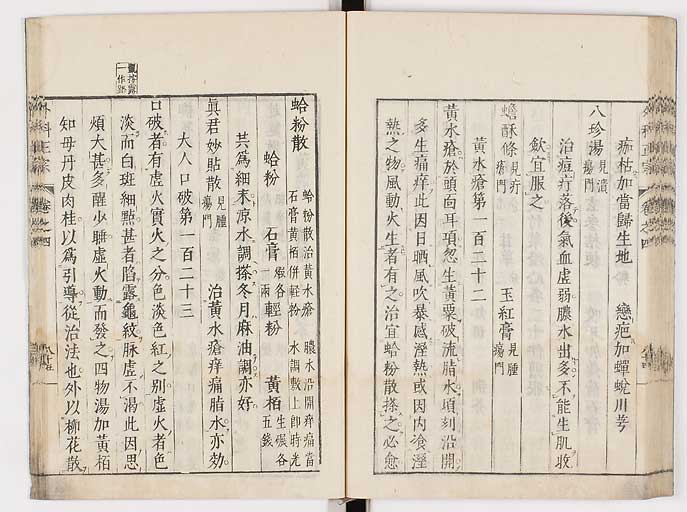 痂枯加當歸生地　戀疤加蟬蛻川芎
八珍湯見潰瘍門
治痘疔落後氣血虛弱膿水出多不能生肌收
斂宜服之
蟾酥條見疔瘡門　玉紅膏見腫瘍門
黃水瘡第一百二十二
黃水瘡於頭面耳項忽生黃粟破流脂水頃刻沿開
多生痛痒此因日晒風吹暴感溼熱或因內飡溼
熱之物風動火生者有之治宜蛤粉散搽之必愈
蛤粉散
蛤粉散治黃水瘡　膿水沿開痒痛當
石膏黃栢併輕粉　水調敷上即時光
蛤粉　石膏煅各一兩　輕粉　黃栢生碾各五錢
共為細末涼水調搽冬月麻油調亦好
眞君妙貼散見腫瘍門　治黃水瘡痒痛脂水亦効
大人口破第一百二十三
口破者有虛火實火之分色淡色紅之別虛火者色
淡而白斑細點甚者陷露龜紋脉虛不渴此因思
煩太甚多醒少睡虛火動而發之四物湯加黃栢
知母丹皮肉桂以為引導從治法也外以柳花散
外科正宗
卷之四
外科正宗
卷之四